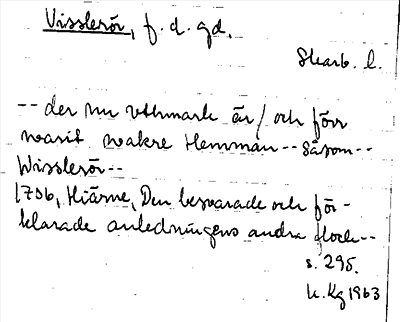 Visslerör, f. d. gd.
Skarb. l.
-- der nu uthmark är / och förr
warit wakre Hemman -- Såsom --
Wisslerör --
1706, Hiärne, Den beswarade och för-
klarade anledningens andra flock --
s. 295.
K. Kg 1963